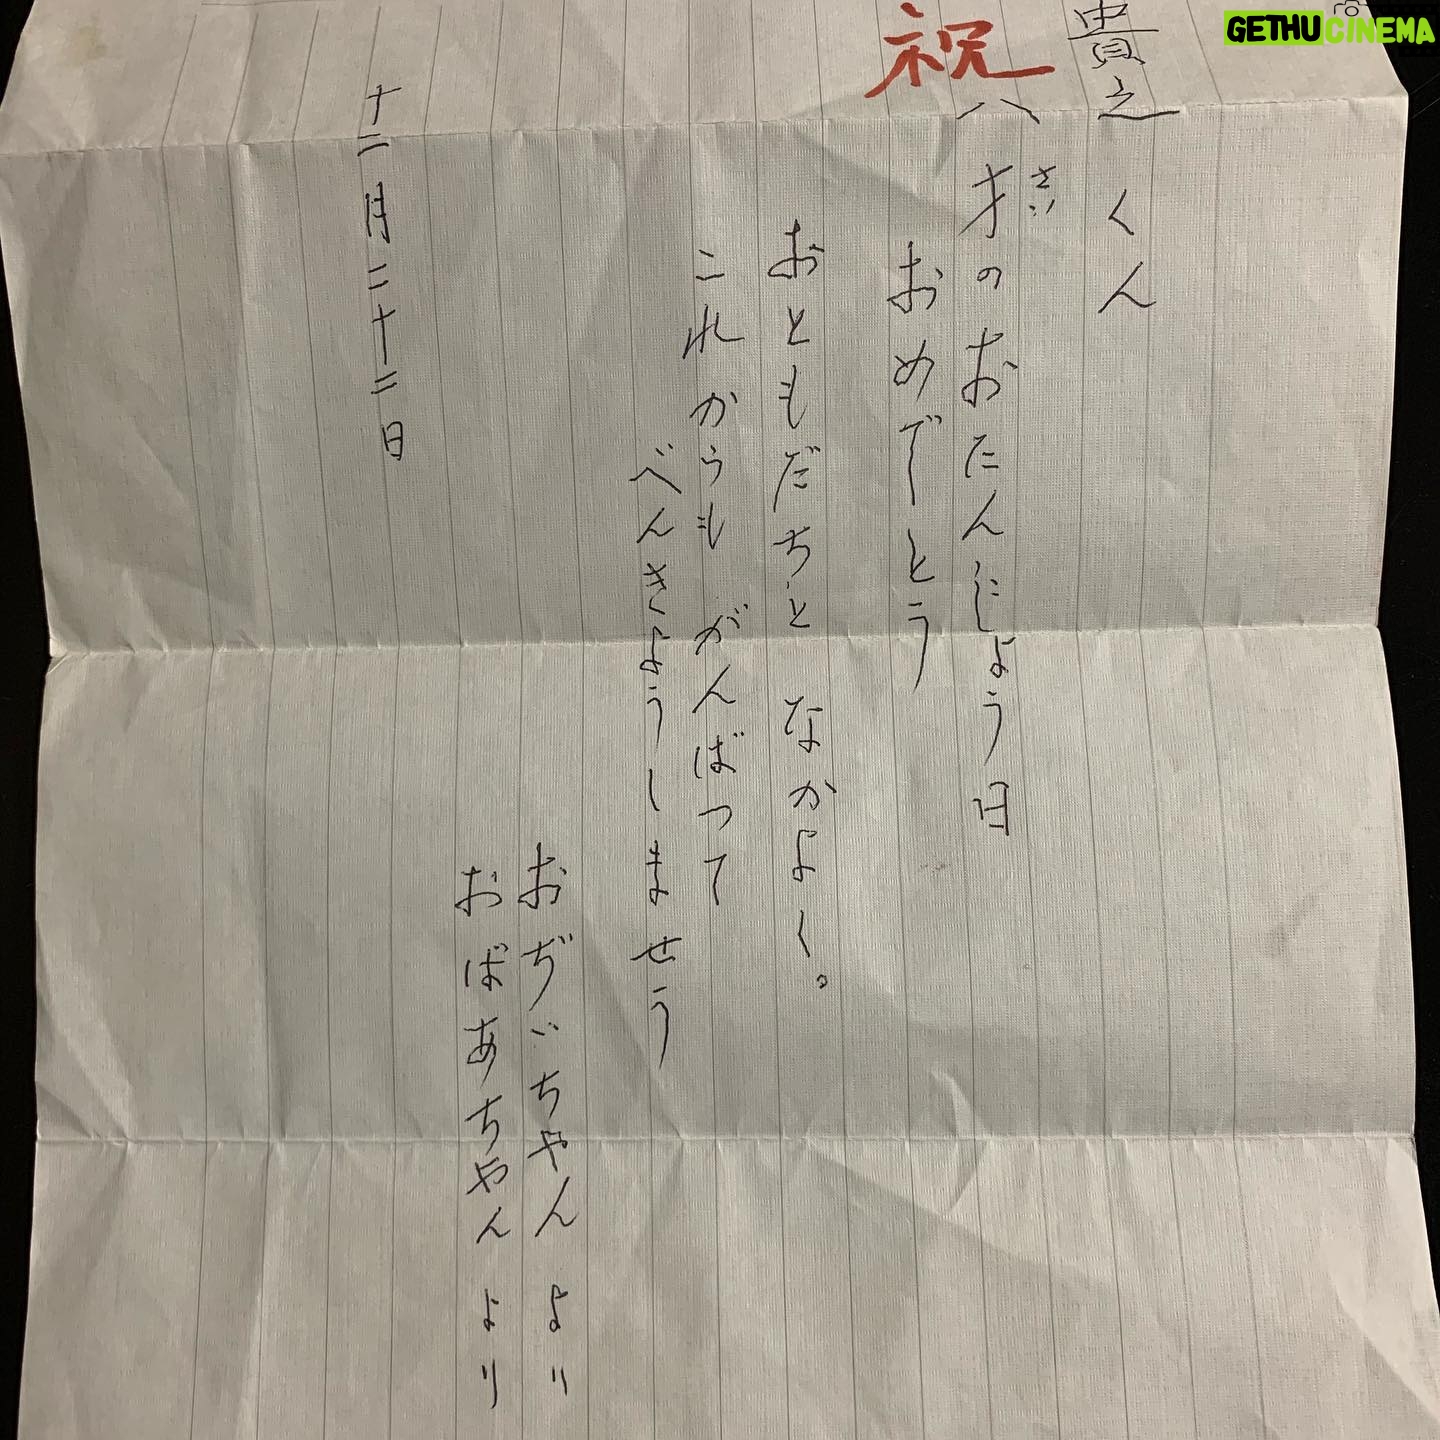 貴之くん
祝
八才のおたんじよう日
さい
おめでとう
おともだちと なかよく。
これからも がんばつて
べんきようしませう
おぢいちやん より
おばあちやん より
十二月二十二日
GETHUCINEMA